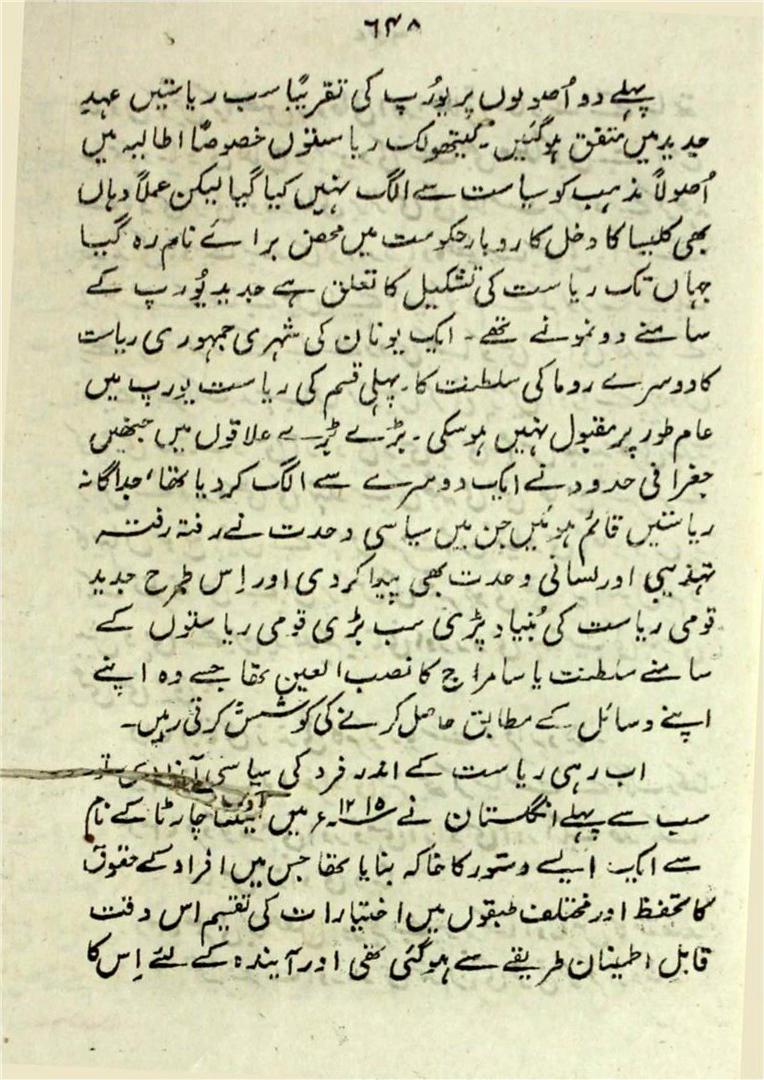 ۶۴۸
پہلے دو اُصولوں پر یورُپ کی تقریباً سب ریاستیں عہدِ
جدید میں متفق ہوگئیں۔ کیتھولک ریاستوں خصوصاً اطالیہ میں
اُصولاً مذہب کو سیاست سے الگ نہیں کیا گیا لیکن عملاً وہاں
بھی کلیسا کا دخل کاروبارِ حکومت میں محض برائے نام رہ گیا
جہاں تک ریاست کی تشکیل کا تعلق ہے جدید یُورپ کے
سامنے دو نمونے تھے۔ ایک یونان کی شہری جمہوری ریاست
کا دوسرے روما کی سلطنت کا۔ پہلی قسم کی ریاست یورپ میں
عام طور پر مقبول نہیں ہوسکی۔ بڑے بڑے علاقوں میں جنھیں
جغرافی حدود نے ایک دوسرے سے الگ کردیا تھا، جداگانہ
ریاستیں قائم ہوئیں جن میں سیاسی وحدت نے رفتہ رفتہ
تہذیبی اور لسانی وحدت بھی پیدا کردی اور اِس طرح جدید
قومی ریاست کی بُنیاد پڑی سب بڑی قومی ریاستوں کے
سامنے سلطنت یا سامراج کا نصب العین تھا جسے وہ اپنے
اپنے وسائل کے مطابق حاصل کرنے کی کوشش کرتی رہیں۔
اب رہی ریاست کے اندر فرد کی سیاسی
سب سے پہلے انگلستان نے ۱۲۱۵ء میں چارٹا کے نام
سے ایک ایسے دستور کا خاکہ بنایا تھا جس میں افراد کے حقوق
کا تحفظ اور مختلف طبقوں میں اختیارات کی تقسیم اس وقت
قابلِ اطمینان طریقے سے ہوگئی تھی اور آیندہ کے لئے اِس کا